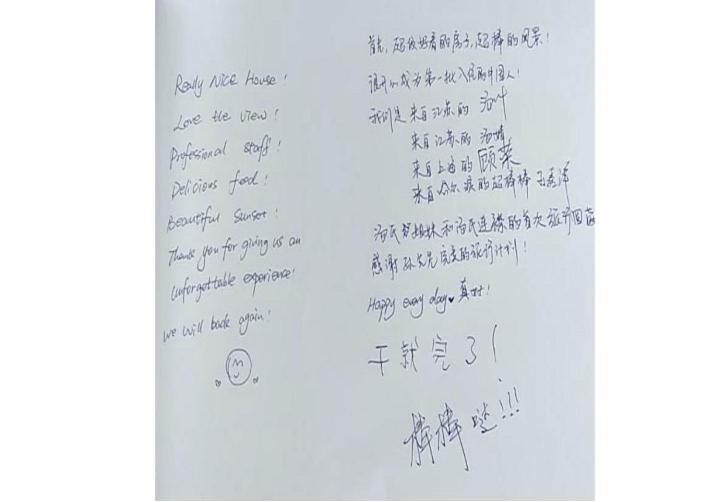 Really Nice House!
Love the view!
Professional staff!
Delicious food!
Beautiful Sunset!
Thank you for giving us an
unforgettable experience!
we will back again!
首先,超级好看的房子,超棒的风景!
很开心成为第一批入住的中国人!
我们是 来自江苏的 汤叶
来自江苏的 汤婧
来自上海的 顾菜
来自哈尔滨的超棒棒 王
汤氏 姐妹和汤氏连襟的首次旅行
感谢孙先生完美的旅行计划!
Happy every day 真 !
干就完了!
棒棒哒!!!